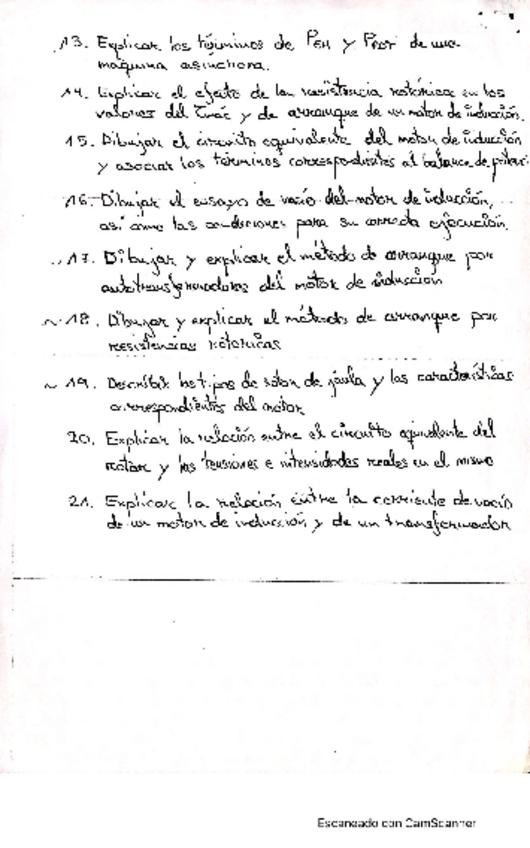 13. Explicar los términos de PEM y PROT de una
maquina asincrona.
14. Explicar el efecto de la resistencia rotórica en los
valores del Tmáx y de arranque de un motor de inducción.
15. Dibujar el circuito equivalente del motor de inducción
y asociar los términos correspondientes al balance de poten.
16. Dibujar el ensayo de vacío del motor de inducción,
así como las condiciones para su correcta ejecución.
17. Dibujar y explicar el método de arranque por
autotransformadores del motor de inducción
18. Dibujar y explicar el método de arranque por
resistencias rotóricas
19. Describir los tipos de rotor de jaula y las características
correspondientes del motor
20. Explicar la relación entre el circuito equivalente del
rotor y las tensiones e intensidades reales en el mismo
21. Explicar la relación entre la corriente de vacío
de un motor de inducción y de un transformador
Escaneado con CamScanner